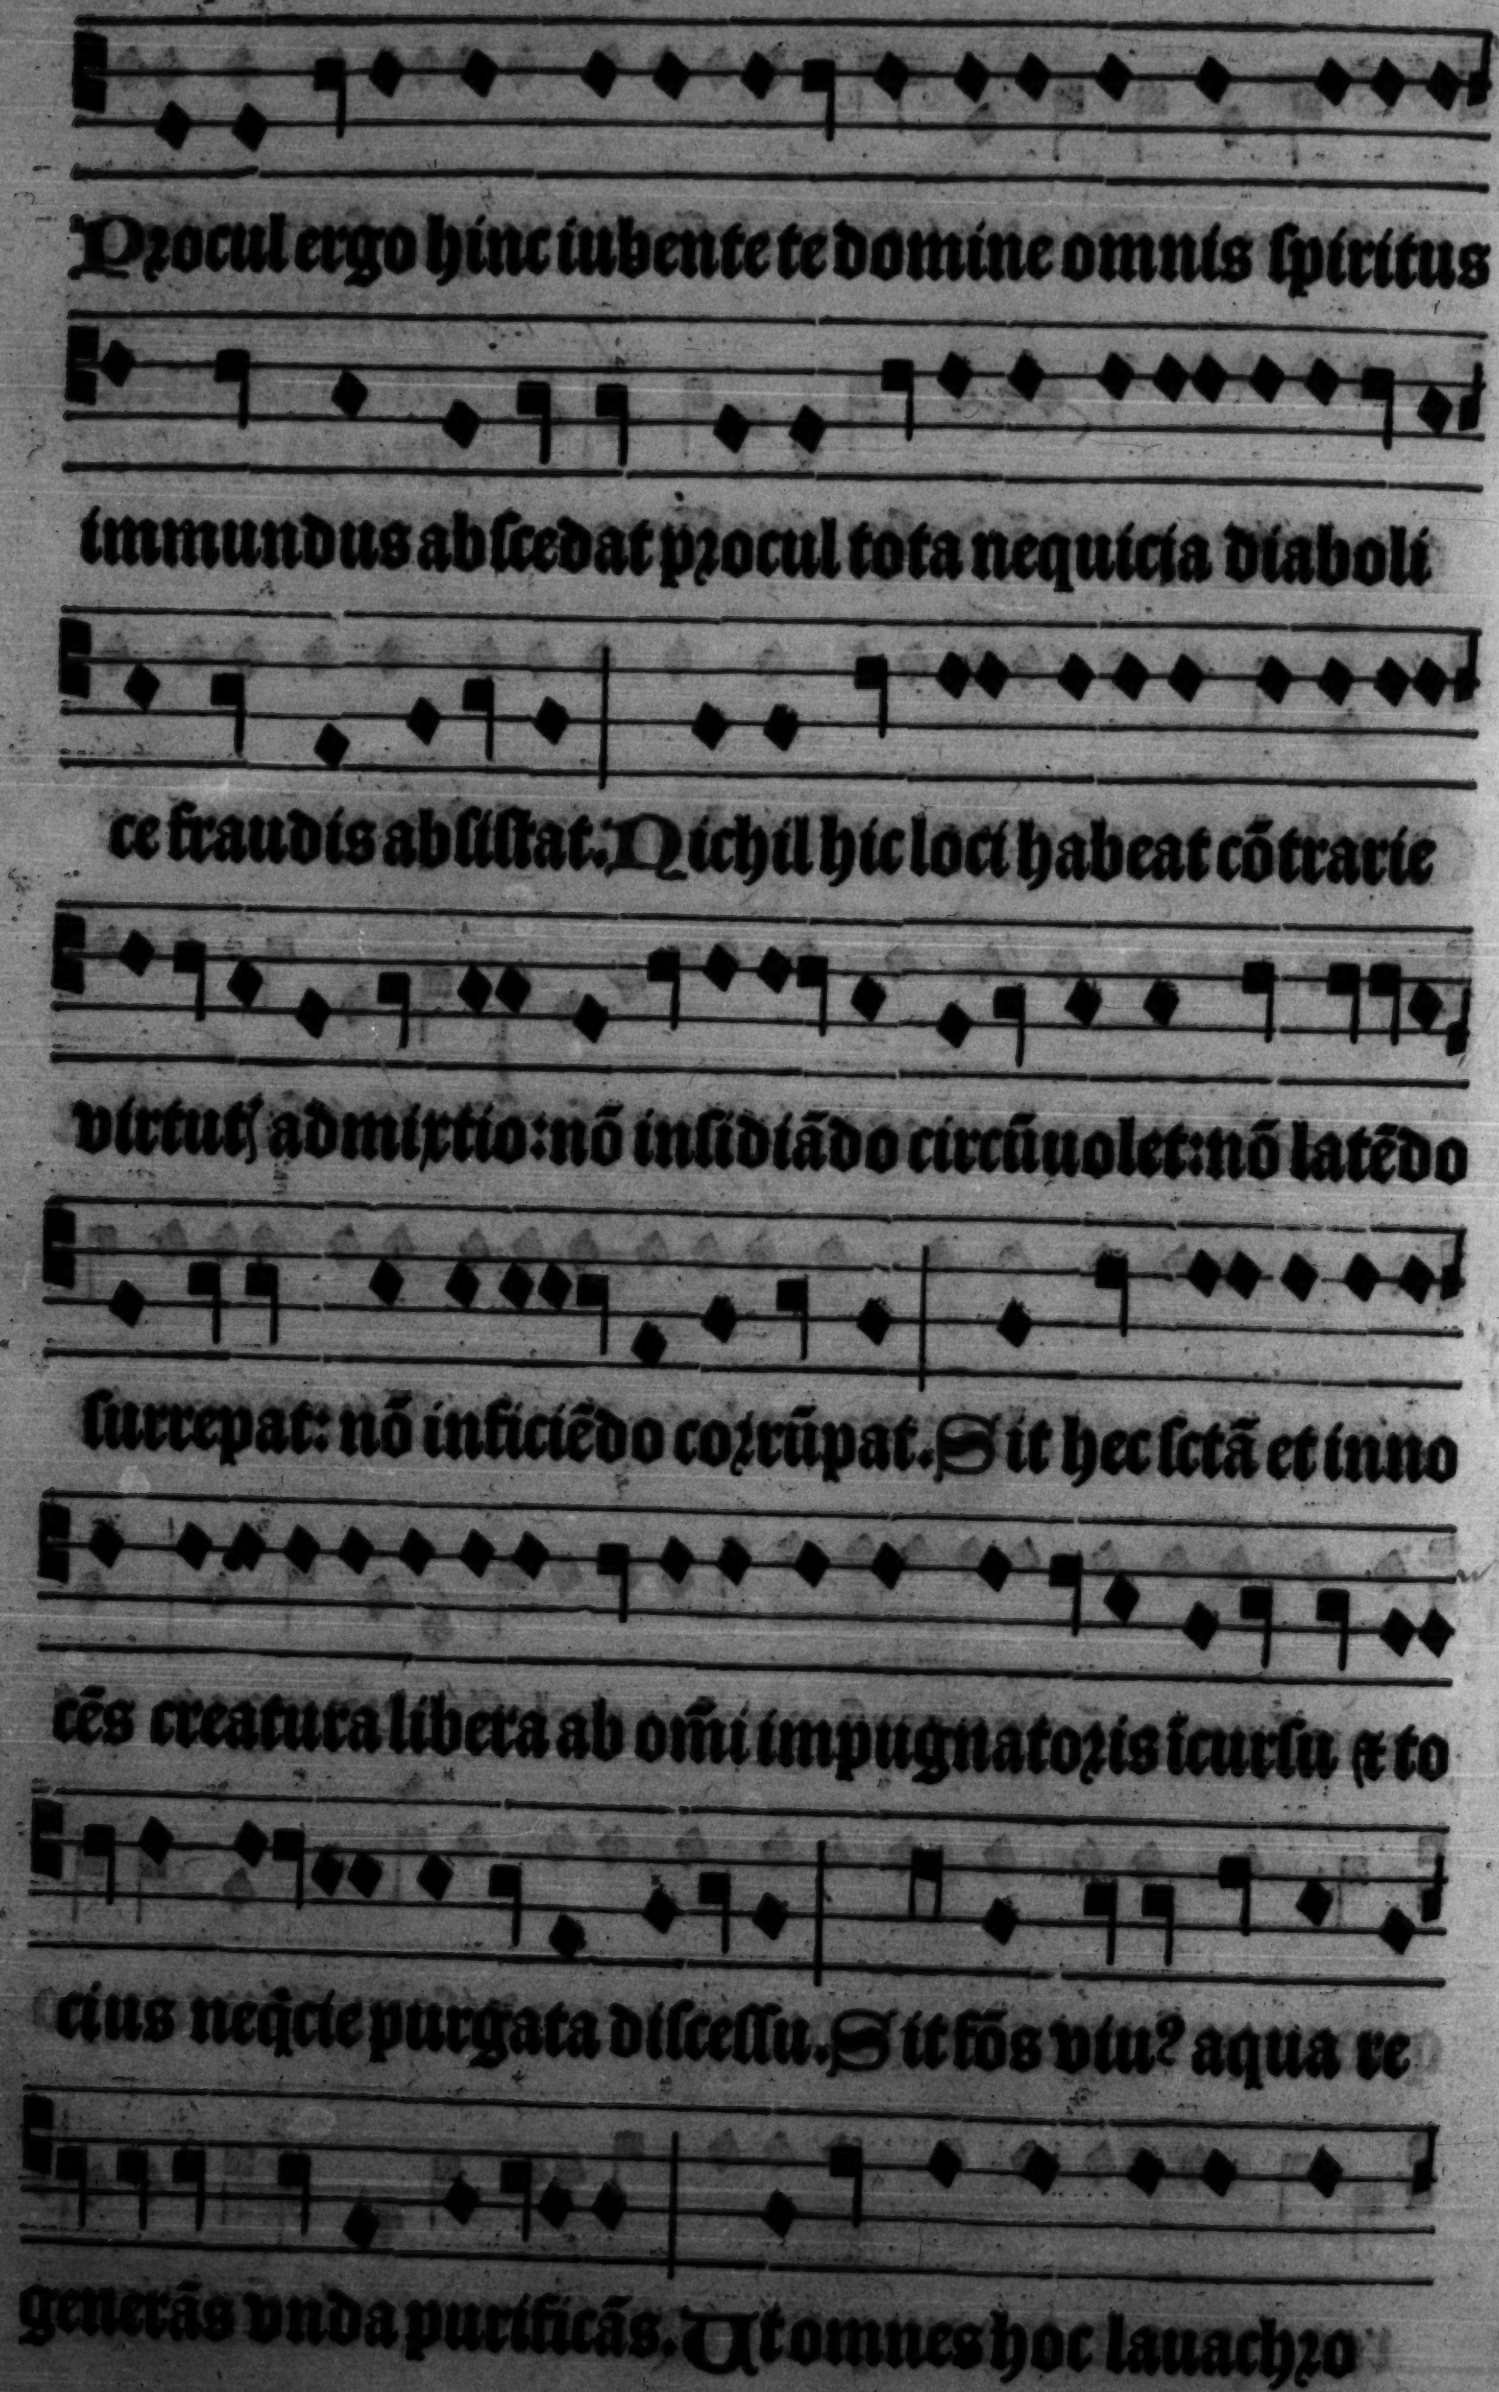 Procul ergo hinc iubente te domine omnis spiritus
immundus abscedat procul tota nequicia diaboli
ce fraudis absistat. Nichil hic loci habeat cōtrarie
virtutꝭ admixtio: nō insidiādo circūuolet: nō latēdo
surrepat: nō inficiēdo corrūpat. Sit hec sctā et inno
cēs creatura libera ab om̄i impugnatoris īcursu ⁊ to
cius neq̄cie purgata discessu. Sit fōs viuꝰ aqua re
generās vnda purificās. Ut omnes hoc lauachro